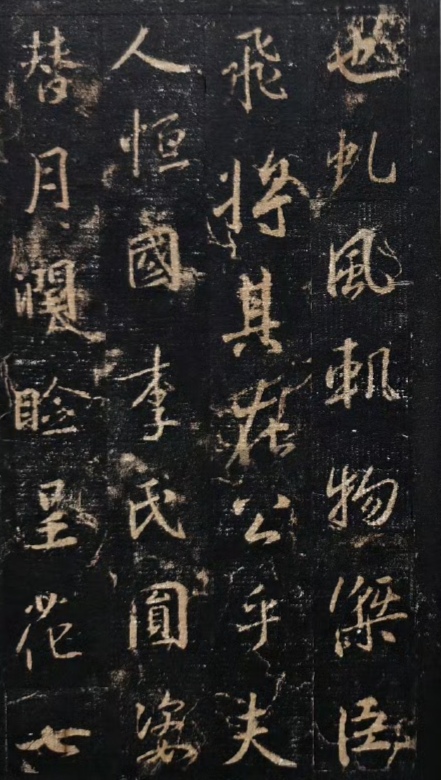 也虬風軌物傑臣
飛將其在公乎夫
人恒國李氏圓姿
替月潤瞼呈花七